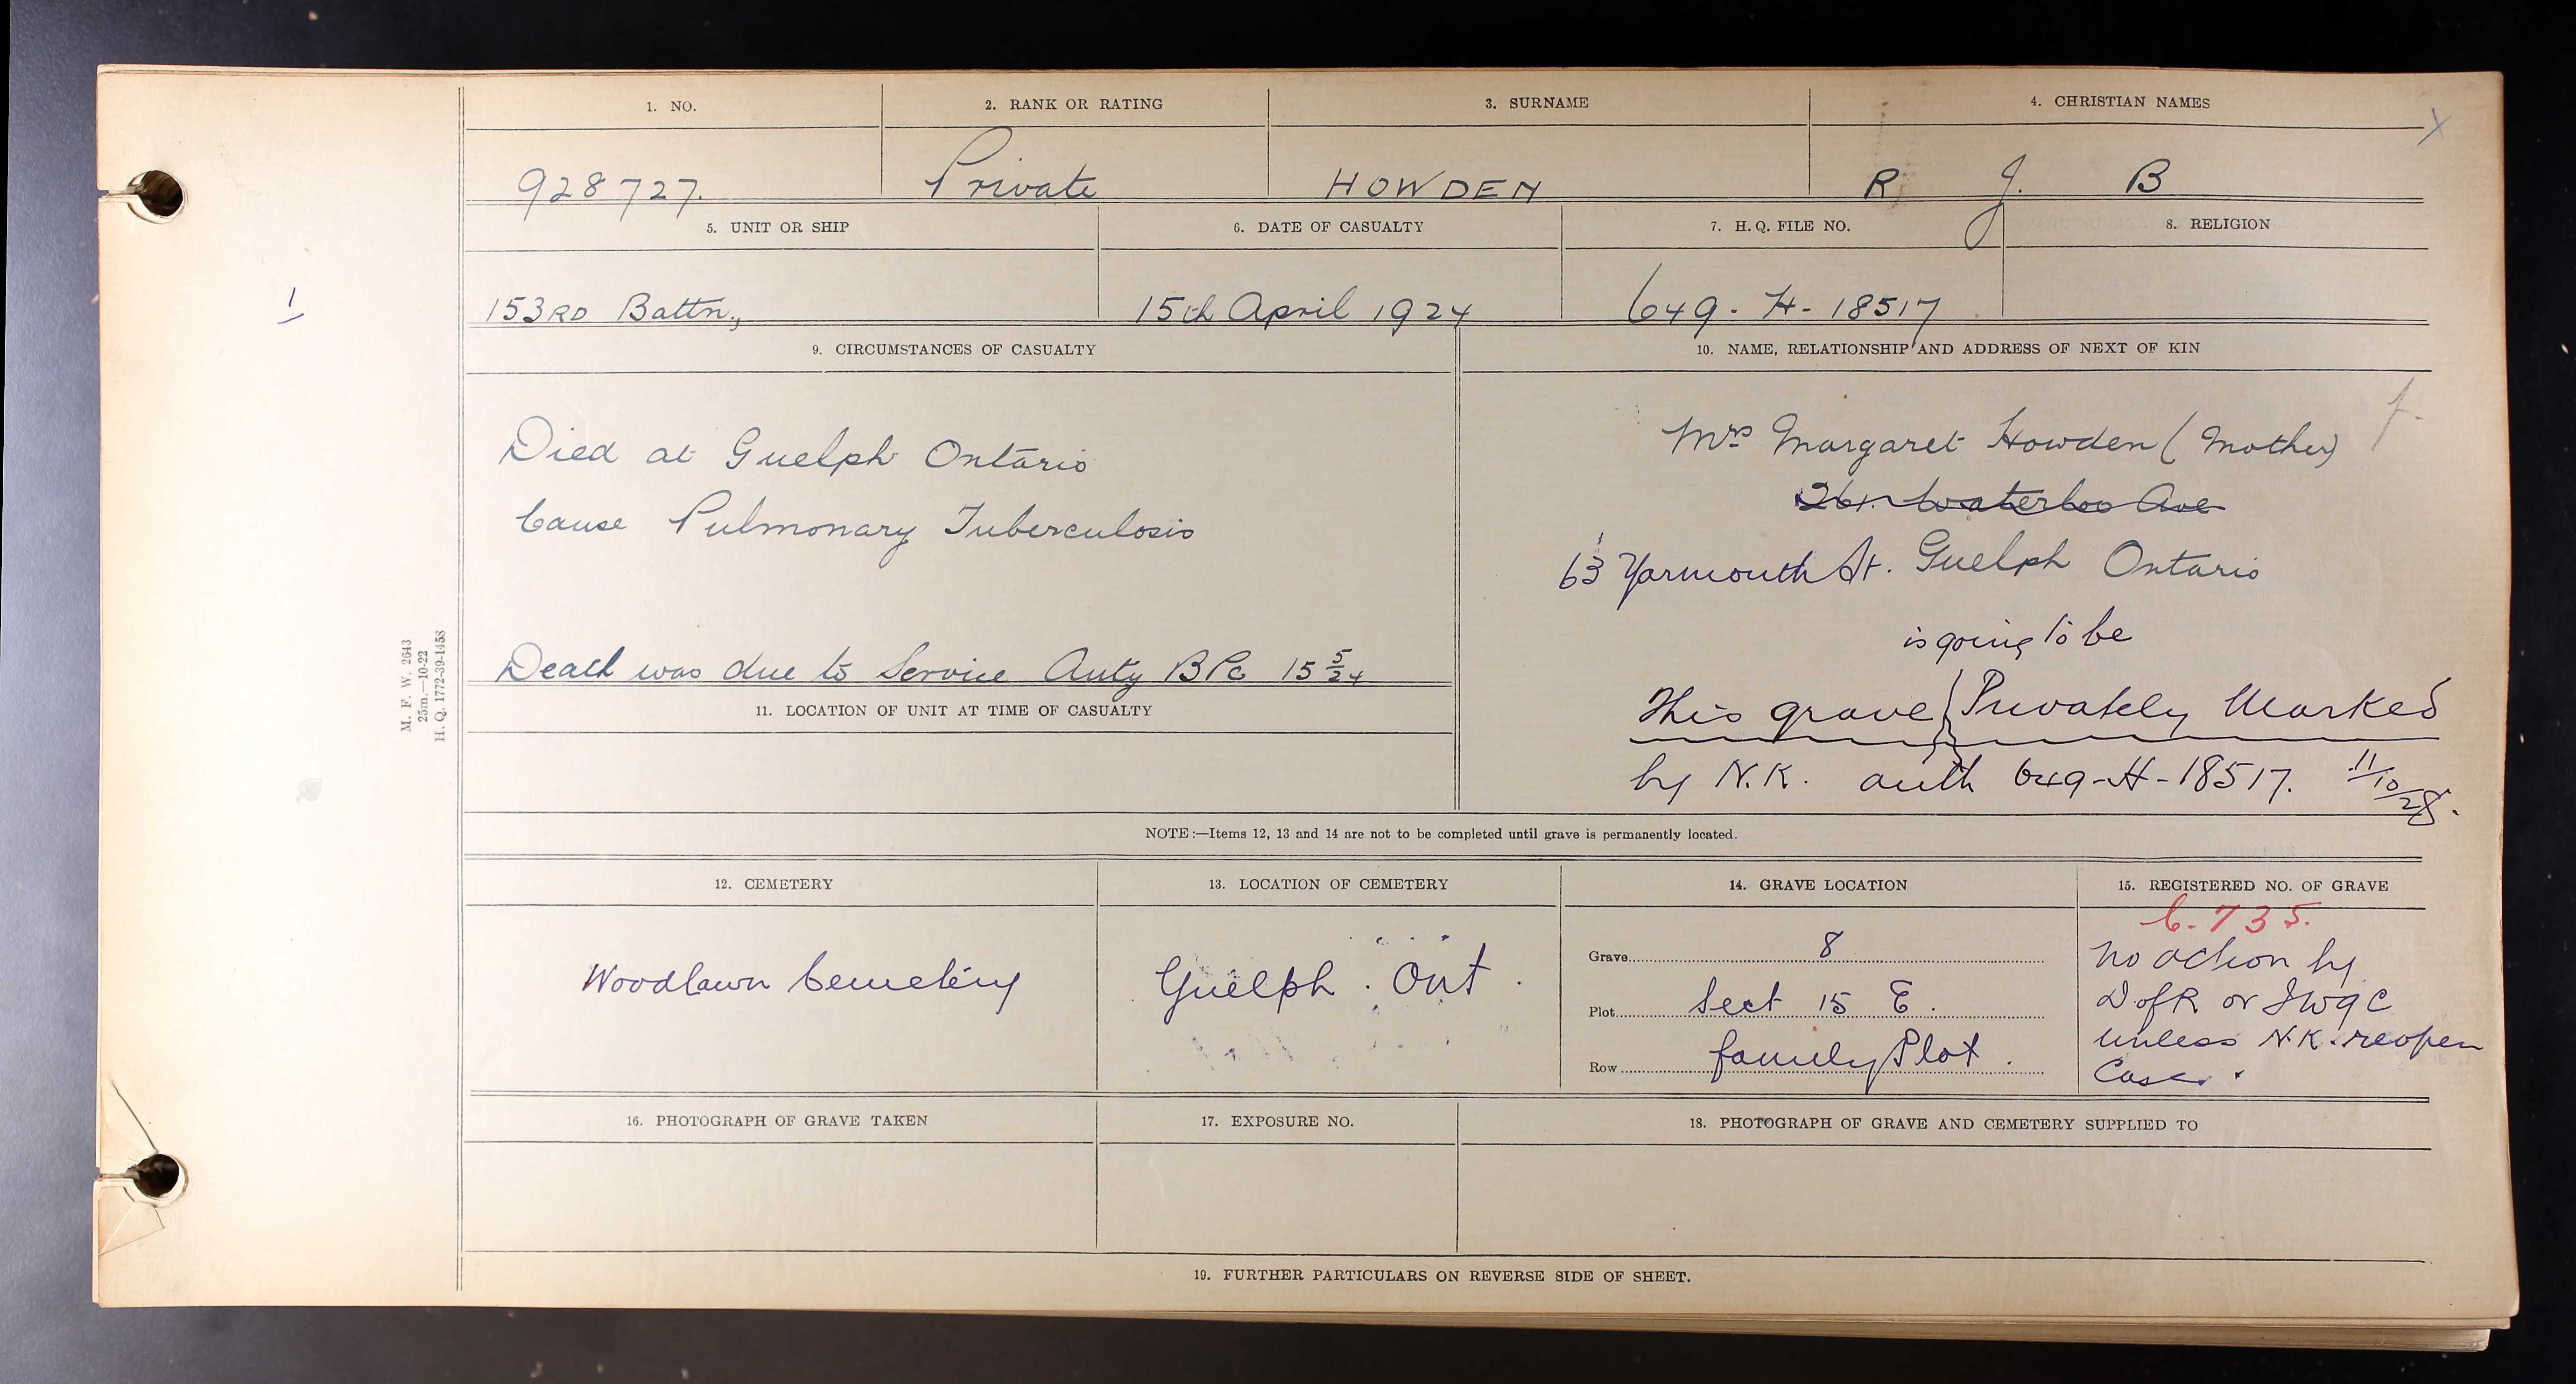 1. NO. 2. RANK OR RATING 3. SURNAME 4. CHRISTIAN NAMES
X
928727. Private HOWDEN R J. B
5. UNIT OR SHIP 6. DATE OF CASUALTY 7. H.Q. FILE NO. 8. RELIGION
153RD Battn., 15th April 1924 649-H-18517
1
9. CIRCUMSTANCES OF CASUALTY
Died at Guelph Ontario
Cause Pulmonary Tuberculosis
Death was due to Service Auty BPC 15 5/24
10. NAME, RELATIONSHIP AND ADDRESS OF NEXT OF KIN
Mrs Margaret Howden (Mother)
Waterloo Ave
63 Yarmouth St. Guelph Ontario
is going to be
This grave Privately Marked
by N.K. auth 649-H-18517. 11/10/28.
11. LOCATION OF UNIT AT TIME OF CASUALTY
M. F. W. 2643
25m.—10-22
H. Q. 1772-39-1458
NOTE:—Items 12, 13 and 14 are not to be completed until grave is permanently located.
12. CEMETERY 13. LOCATION OF CEMETERY 14. GRAVE LOCATION 15. REGISTERED NO. OF GRAVE
Woodlawn Cemetery
Guelph. Ont.
Grave 8
Plot Sect 15 E.
Row family Plot.
C. 735.
No action by
D of R or IWGC
unless N.K. reopen
Case.
16. PHOTOGRAPH OF GRAVE TAKEN 17. EXPOSURE NO. 18. PHOTOGRAPH OF GRAVE AND CEMETERY SUPPLIED TO
19. FURTHER PARTICULARS ON REVERSE SIDE OF SHEET.